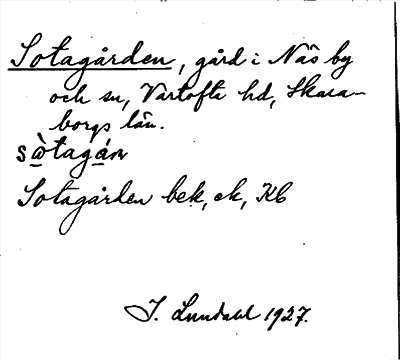 Sotagården, gård i Näs by
och sn, Vartofta hd, Skara-
borgs län.
sòtagán
Sotagården bek, ek, Kb
I. Lundahl 1927.